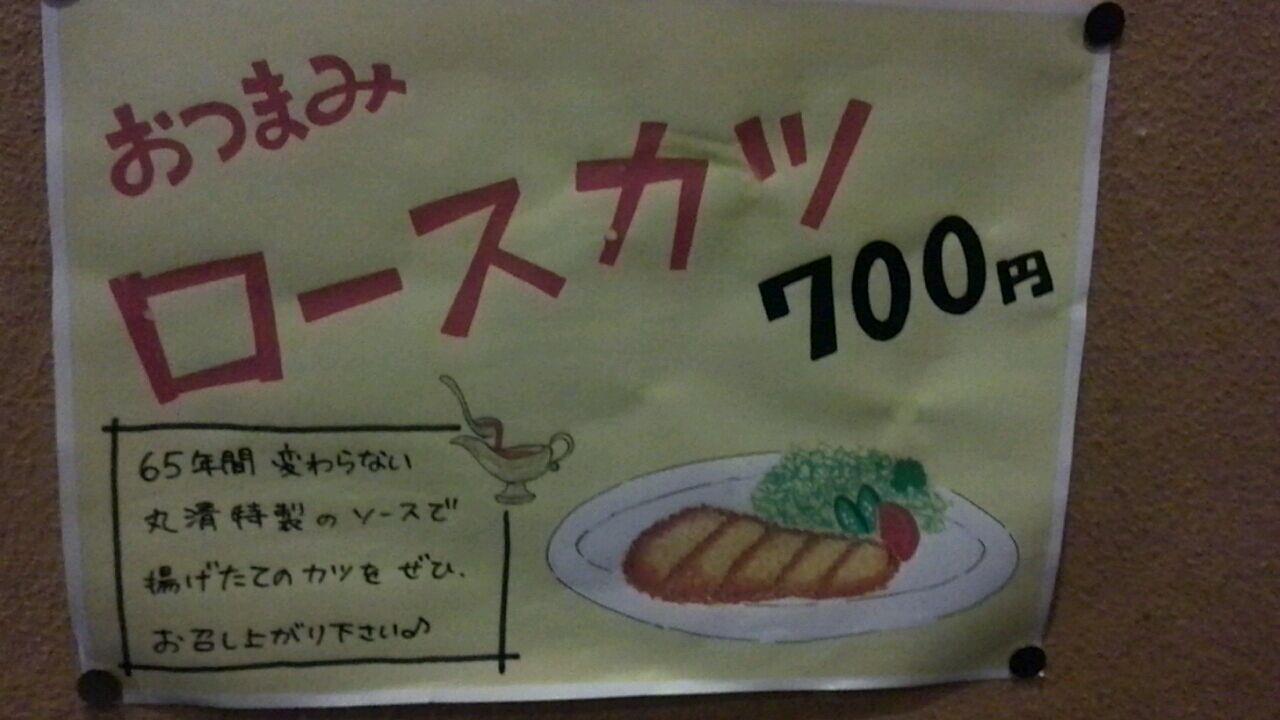 おつまみ
ロースカツ
700円
65年間 変わらない
丸清特製のソースで
揚げたてのカツを ぜひ、
お召し上がり下さい♪